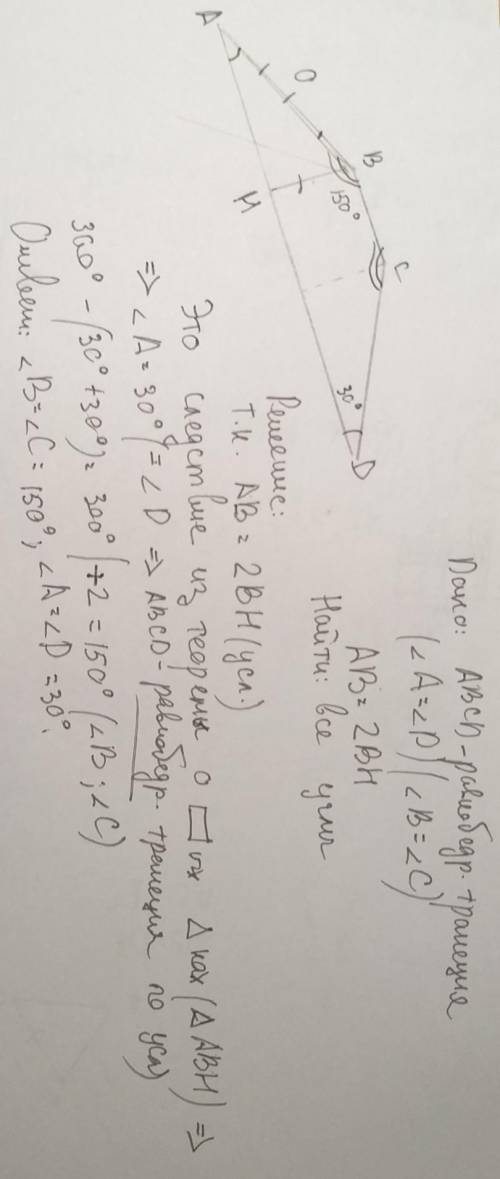 Дано: ABCD - равнобедр. трапеция
(∠A=∠D) (∠B=∠C)
AB = 2BH
Найти: все углы
A
O
B
150°
C
H
30°
D
Решение:
Т.к. AB = 2BH (усл.)
Это следствие из теоремы о □ых Δках (Δ ABH) =>
=> ∠A = 30° (= ∠D => ABCD - равнобедр. трапеция по усл)
360° - (30° + 30°) = 300° (÷2 = 150° (∠B; ∠C)
Ответ: ∠B = ∠C = 150°; ∠A = ∠D = 30°.